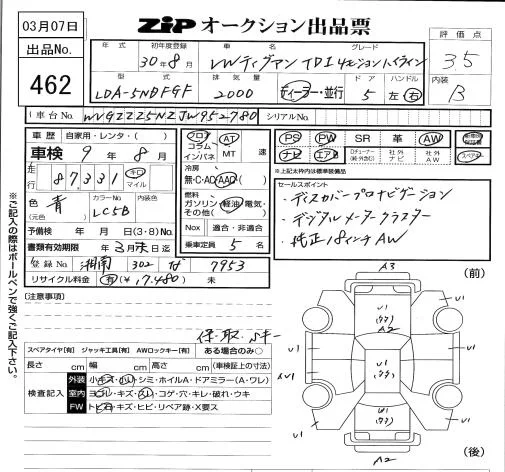 03月07日
ZIP オークション出品票
出品No.
462
年式 初年度登録 車名 グレード
30年8月 VWティグアン TDI 4モーション ハイライン
評価点
3.5
型式 排気量 ドア ハンドル
LDA-5NDFGF 2000 ディーラー・並行 5 左・右
内装
B
車台No. WVGZZZ5NZJW952780 シリアルNo.
車歴 自家用・レンタ・( )
車検 9年 8月
走行 87,331 キロ マイル
色 青 (元色)
カラーNo. LC5B
予備検 年 月 日(3・8)No.
書類有効期限 3月末日迄
登録No 湘南 302 な 7953
リサイクル料金 有(¥17,480) 未
フロア コラム インパネ
AT MT 速
冷房
無・C・AC・AAC
燃料
ガソリン・軽油・電気・その他( )
Nox 適合・非適合
乗車定員 5 名
PS PW SR 革 AW
ナビ エアB Dチューナー(純・外含む) 社外ナビ 社外AW スペアキー
※上記太枠内は標準装備品
セールスポイント
・ディスカバープロナビゲーション
・デジタルメータークラスター
・純正18インチAW
※ご記入の際はボールペンで強くご記入下さい。
(注意事項)
保・取・Sキー
スペアタイヤ[有] ジャッキ工具[有] AWロックキー[有] ある場合のみ○
長さ cm 幅 cm 高さ cm (車検証上の寸法)
検査記入
外装 小キズ・凹・シミ・ホイルA・ドアミラー(A・ワレ)
室内 ヨゴレ・キズ・スレ・コゲ・穴・キレ・破れ・ウキ
FW トビ石・キズ・ヒビ・リペア跡・X要ス
(前)
A3
U1
A2
U1
U1
U1
U1
AU1
U1
U1
U1
A2
(後)